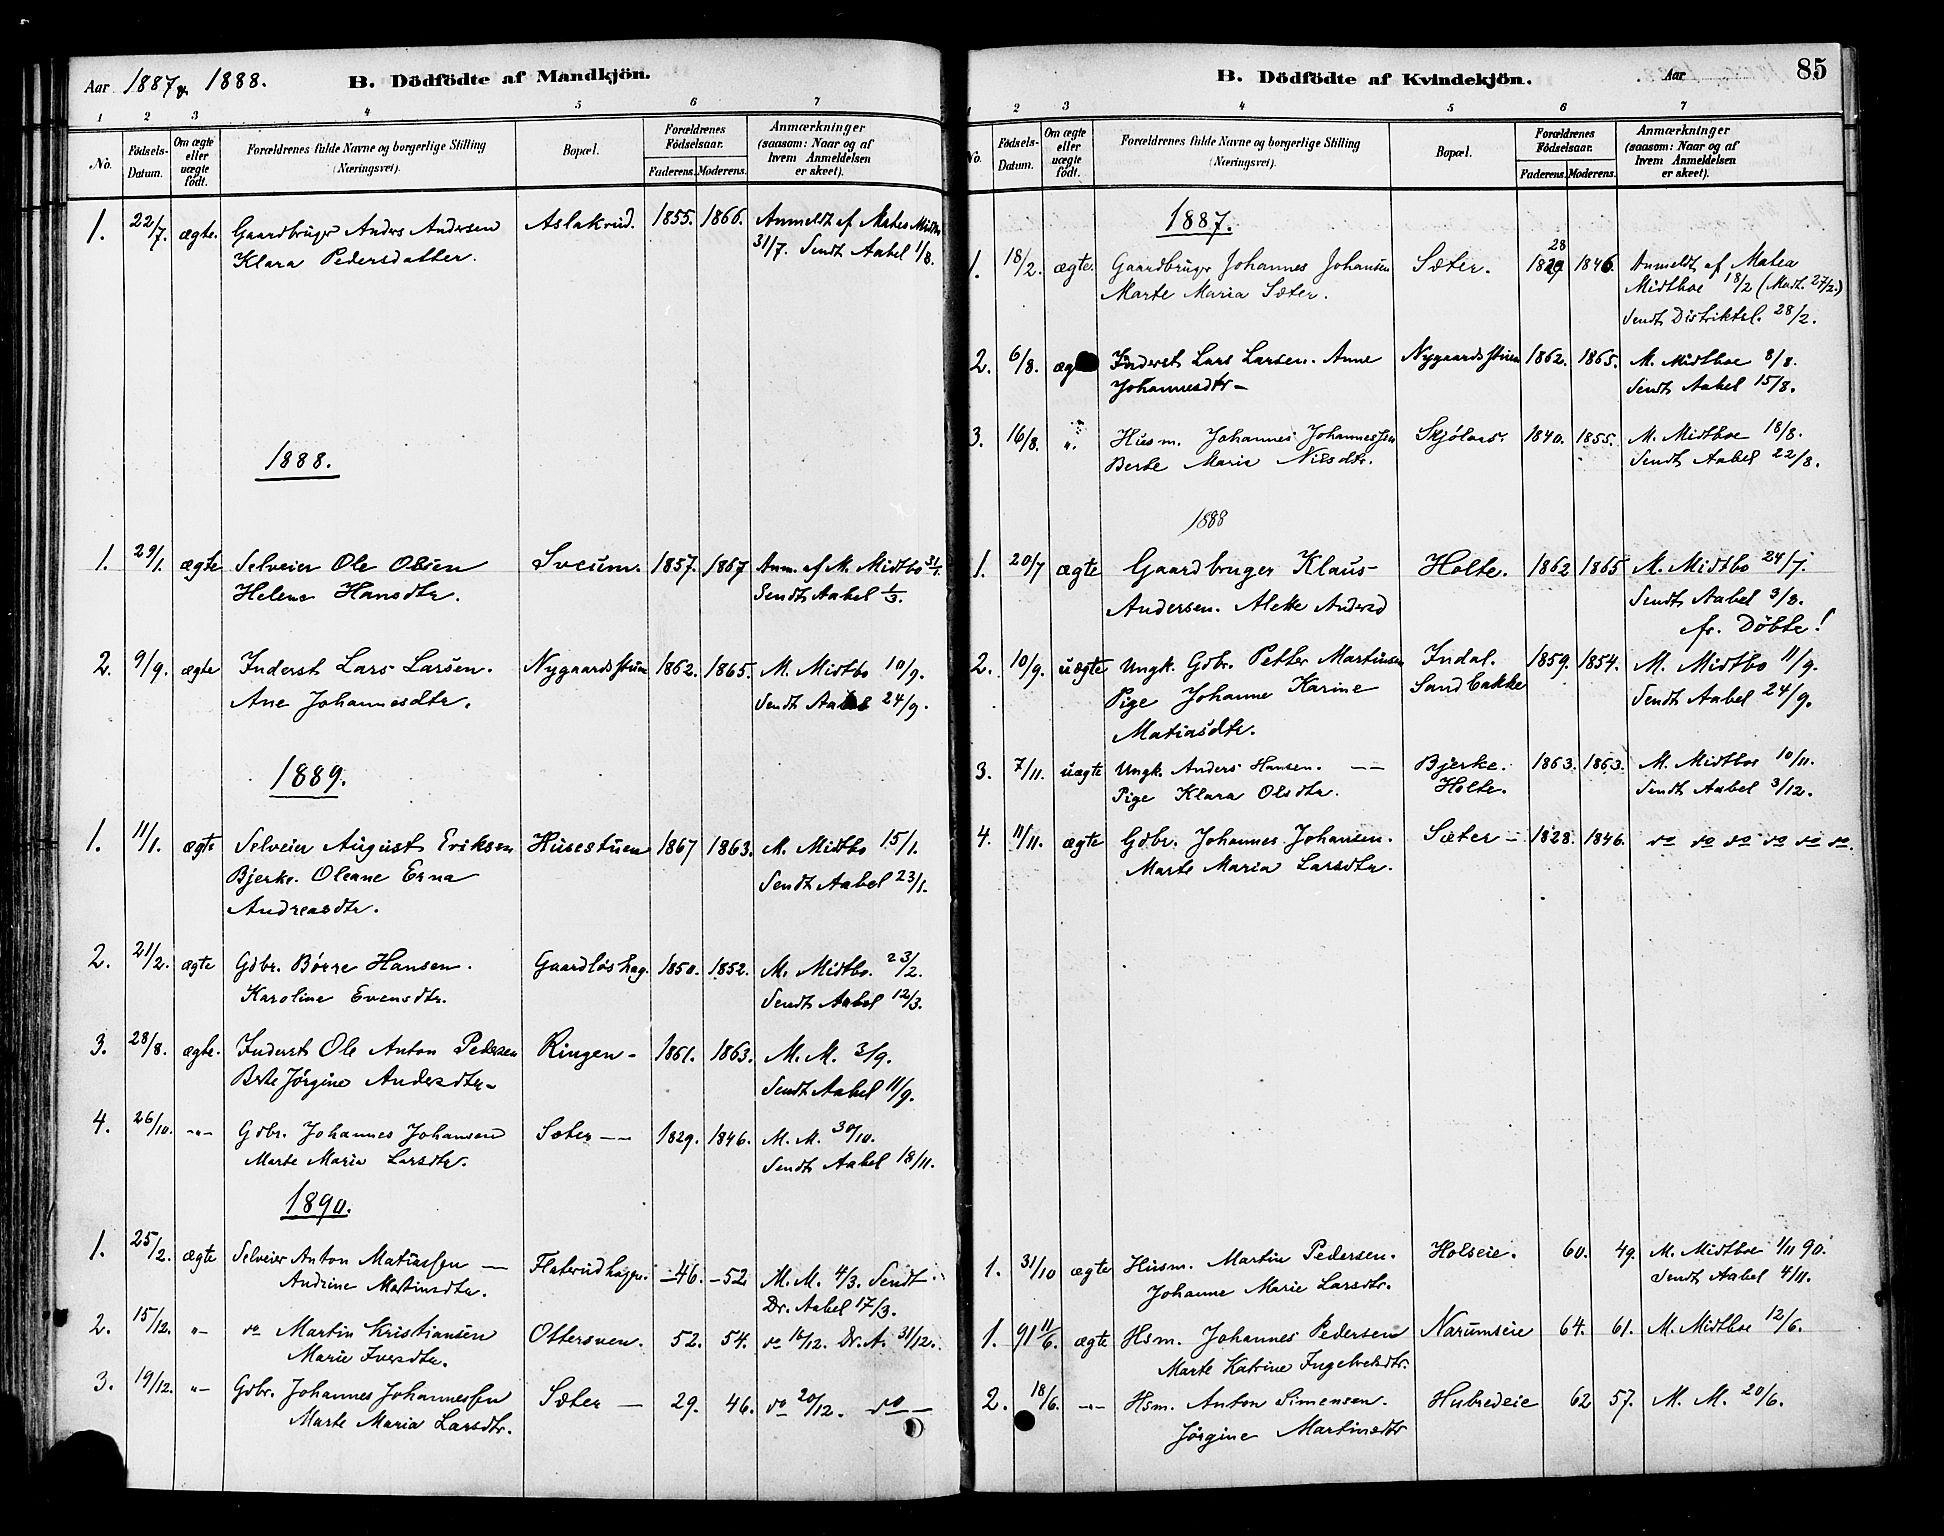 Aar 1887 & 1888. B. Dödfödte af Mandkjön.
1 2 3 4 5 6 7
No. Födsels-Datum. Om ægte eller uægte födt. Forældrenes fulde Navne og borgerlige Stilling (Næringsvei). Bopæl. Forældrenes Födselsaar. Faderens. Moderens. Anmærkninger (saasom: Naar og af hvem Anmeldelsen er skeet).
1. 22/7. ægte. Gaardbruger Anders Andersen Aslakrud. 1855. 1866. Anmeldt af Matea Midtbo
Klara Pedersdatter. 31/7. Sendt Aabel 1/8.
1888.
1. 29/1. ægte Selveier Ole Olsen Sveum. 1857. 1867 Anm. af M. Midtbo 31/1.
Helene Hansdtr. Sendt Aabel 1/3.
2. 9/9. ægte Inderst Lars Larsen. Nygaardsstuen 1862. 1865. M. Midtbo 10/9.
Ane Johannesdtr. Sendt Aabel 24/9.
1889.
1. 11/1. ægte Selveier August Eriksen Husestuen 1867 1863. M. Midtbo 15/1.
Bjerke. Oleane Erna Sendt Aabel 23/1.
Andreasdtr.
2. 21/2. ægte Gdbr. Börre Hansen. Gaardløshag. 1850. 1852. M. Midtbo. 23/2.
Karoline Evensdtr. Sendt Aabel 12/3.
3. 28/8. ægte. Inderst Ole Anton Pedersen Ringen - 1861. 1863. M. M. 3/9.
Berte Jørgine Andersdtr - Sendt Aabel 11/9.
4. 26/10. -"- Gdbr. Johannes Johansen Sæter -- 1829. 1846. M. M. 30/10.
Marte Maria Larsdtr. Sendt Aabel 18/11.
1890.
1. 25/2. ægte Selveier Anton Matiassen — Flaterudhagen. -46. -52 M. M. 4/3. Sendt
Andrine Martinsdtr. Dr. Aabel 17/3.
2. 15/12. "- do Martin Kristiansen Ottersven. 52. 54. do 16/12. Dr. A. 31/12.
Marie Iversdtr.
3. 19/12. "- Gdbr. Johannes Johannessen Sæter — 29. 46. do 20/12. do —
Marte Maria Larsdtr.
B. Dödfödte af Kvindekjön. Aar 85
1 2 3 4 5 6 7
No. Födsels-Datum. Om ægte eller uægte födt. Forældrenes fulde Navne og borgerlige Stilling (Næringsvei). Bopæl. Forældrenes Födselsaar. Faderens. Moderens. Anmærkninger (saasom: Naar og af hvem Anmeldelsen er skeet).
1887.
28
1. 18/2. ægte. Gaardbruger Johannes Johansen Sæter. 1829 1846. Anmeldt af Matea
Marte Maria Sæter. Midtboe 18/2 (Modt. 27/2.)
Sendt Distriktsl. 28/2.
2. 6/8. æg Inderst Lars Larsen. Anne Nygaardsstuen 1862. 1865. M. Midtboe 8/8.
Johannesdtr - Sendt Aabel 15/8.
3. 16/8. ". Husm. Johannes Johannessen Skjølaas. 1840. 1855. M. Midtboe 18/8.
Berte Marie Nilsdtr. Sendt Aabel 22/8.
1888
1. 20/7 ægte Gaardbruger Klaus Holte. 1862 1865 M. Midtbo 24/7.
Andersen. Alette Andersd Sendt Aabel 3/8.
fr. Döbte!
2. 10/9. uægte Ungk. Gdbr. Petter Martinsen Indal. 1859. 1854. M. Midtbo 11/9.
Pige Johanne Karine Sandbakke Sendt Aabel 24/9.
Matiasdtr.
3. 7/11. uægte Ungk. Anders Hansen. -- Bjerke. 1863. 1863. M. Midtboe 10/11.
Pige Klara Olsdtr. Holte. Sendt Aabel 3/12.
4. 11/11. ægte Gdbr. Johannes Johansen. Sæter - 1828. 1846. do do do do do do.
Marte Maria Larsdtr.
1. 31/10 ægte Husm. Martin Pedersen. Holseie. 60. 49. M. Midtboe 1/11 90.
Johanne Marie Larsdtr. Sendt Aabel 4/11.
1. 91 11/6. ægte Hsm. Johannes Pedersen Narumseie 64. 61. M. Midtboe 12/6.
Marte Katrine Ingebretsdtr.
2. 18/6. -"- Hsm. Anton Simensen. Hubredeie 62 57. M. M. 20/6.
Jörgine Martinsdtr